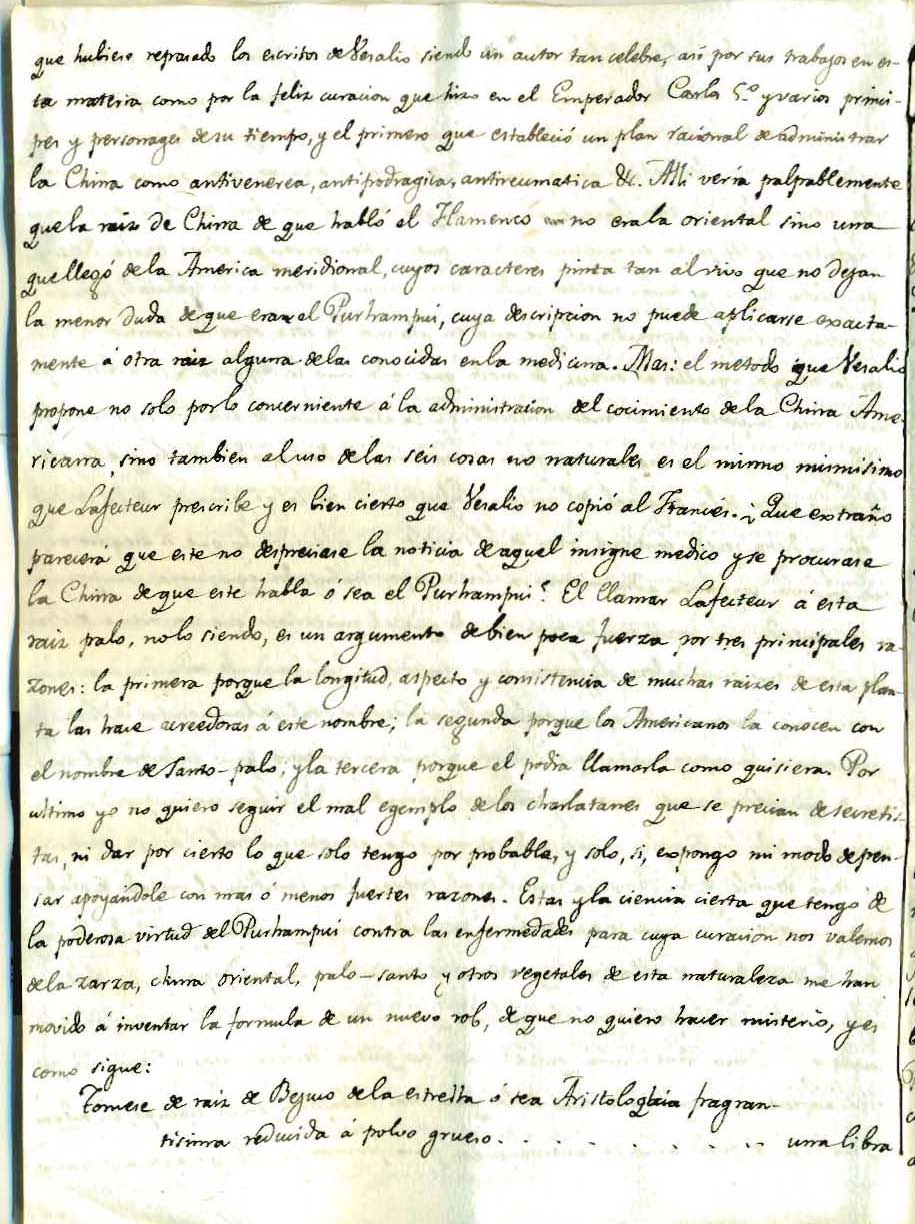 que hubiese repasado los escritos de Vesalio siendo un autor tan celebre, asi por sus trabajos en es-
ta materia como por la feliz curacion que hizo en el Emperador Carlos 5.º y varios princi-
pes y personages de su tiempo, y el primero que estableció un plan racional de administrar
la China como antivenerea, antipodragica, antireumatica &c. Alli veria palpablemente
que la raiz de China de que habló el Flamenco no era la oriental sino una
que llegó de la America meridional, cuyos caracteres pinta tan al vivo que no dejan
la menor duda de que era el Purhampui, cuya descripcion no puede aplicarse exacta-
mente á otra raiz alguna de las conocidas en la medicina. Mas: el metodo que Vesalio
propone no solo por lo concerniente á la administracion del cocimiento de la China Ame-
ricana, sino tambien al uso de las seis cosas no naturales es el mismo mismisimo
que Lafecteur prescribe y es bien cierto que Vesalio no copió al Francés. ¿Que extraño
parecerá que este no despreciase la noticia de aquel insigne medico y se procurase
la China de que este habla ó sea el Purhampui? El llamar Lafecteur á esta
raiz palo, no lo siendo, es un argumento de bien poca fuerza por tres principales ra-
zones: la primera porque la longitud, aspecto y consistencia de muchas raizes de esta plan-
ta las hace acreedoras á este nombre; la segunda porque los Americanos la conocen con
el nombre de Santo-palo; y la tercera porque el podia llamarla como quisiera. Por
ultimo yo no quiero seguir el mal egemplo de los charlatanes que se precian de secretis-
tas, ni dar por cierto lo que solo tengo por probable, y solo, si, expongo mi modo de pen-
sar apoyándole con mas ó menos fuertes razones. Estas y la ciencia cierta que tengo de
la poderosa virtud del Purhampui contra las enfermedades para cuya curacion nos valemos
de la zarza, china oriental, palo-santo y otros vegetales de esta naturaleza me han
movido á inventar la formula de un nuevo rob, de que no quiero hacer misterio, y es
como sigue:
Tomese de raiz de Bejuco de la estrella ó sea Aristologia fragran-
tisima reducida á polvo grueso. . . . . . . . . . . una libra